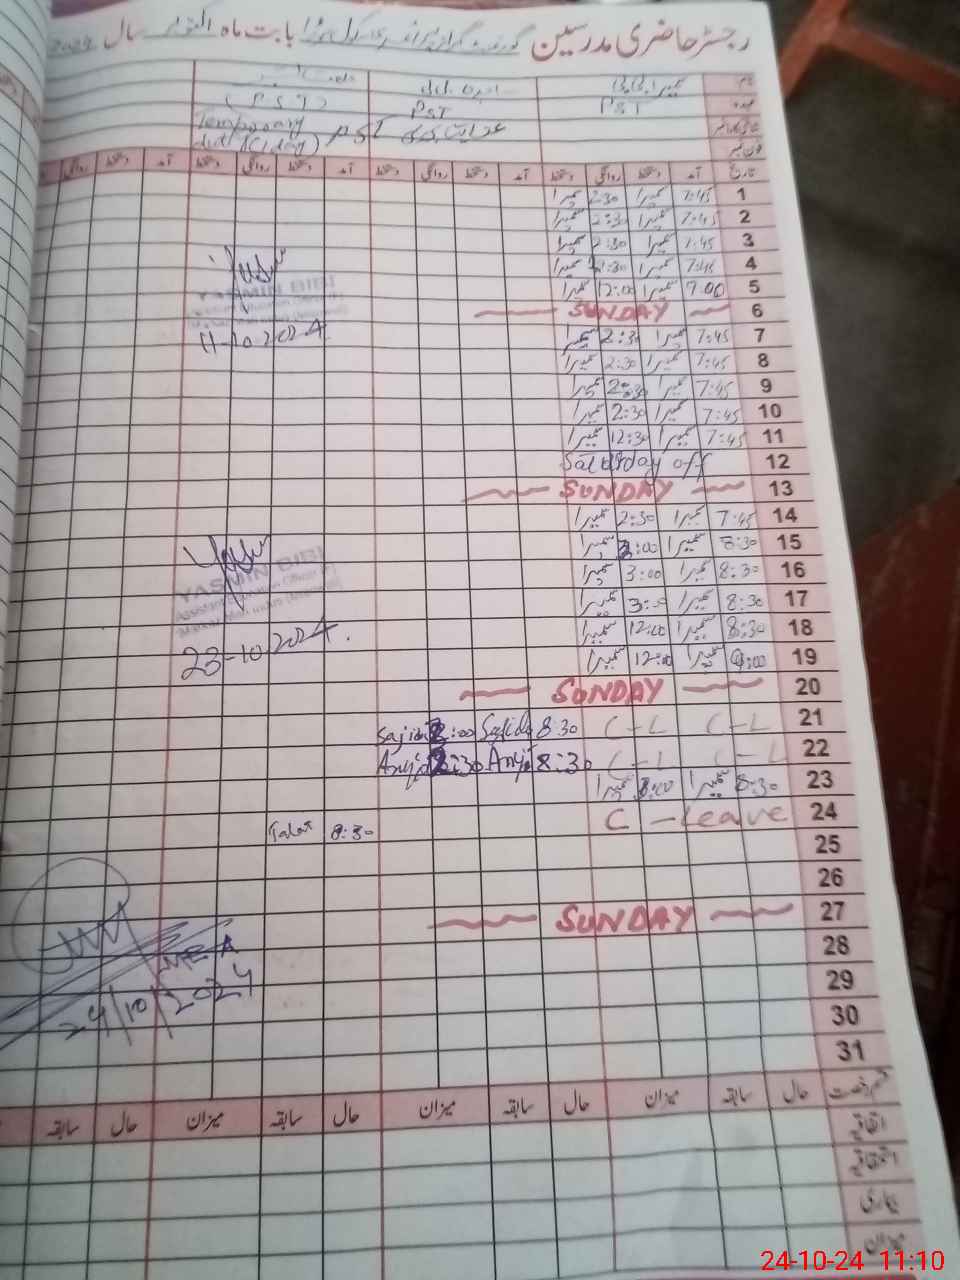 رجسٹر حاضری مدرسین گورنمنٹ گرلز پرائمری سکول بابت ماہ اکتوبر سال 2024
نام سمیرا بی بی
عہدہ PST PST (PST)
PST Temporary
فون نمبر duty (1 day)
تاریخ آمد دستخط روانگی دستخط آمد دستخط روانگی دستخط آمد دستخط روانگی دستخط آمد دستخط روانگی
1 7:45 سمیرا 2:30 سمیرا
2 7:45 سمیرا 2:30 سمیرا
3 7:45 سمیرا 2:30 سمیرا
4 7:45 سمیرا 2:30 سمیرا
5 7:00 سمیرا 12:00 سمیرا
6 SUNDAY
7 7:45 سمیرا 2:30 سمیرا
8 7:45 سمیرا 2:30 سمیرا
9 7:45 سمیرا 2:30 سمیرا
10 7:45 سمیرا 2:30 سمیرا
11 7:45 سمیرا 12:30 سمیرا
YASMIN BIBI
11-10-2024
12 Saturday off
13 SUNDAY
14 7:45 سمیرا 2:30 سمیرا
15 8:30 سمیرا 3:00 سمیرا
16 8:30 سمیرا 3:00 سمیرا
17 8:30 سمیرا 3:00 سمیرا
18 8:30 سمیرا 12:00 سمیرا
19 9:00 سمیرا 12:00 سمیرا
YASMIN BIBI
Assistant Education Officer
23-10-2024.
20 SUNDAY
21 C-L C-L 8:30 Sajida 3:00 Sajida
22 C-L C-L 8:30
23 8:30 سمیرا 3:00 سمیرا
24 C-Leave 8:30 Talat
25
26
27 SUNDAY
28
29
30
31
MEA
24/10/2024
قسم رخصت حال سابقہ میزان حال سابقہ میزان حال سابقہ میزان حال سابقہ
اتفاقیہ
استحقاقیہ
بیماری
میزان
24-10-24 11:10